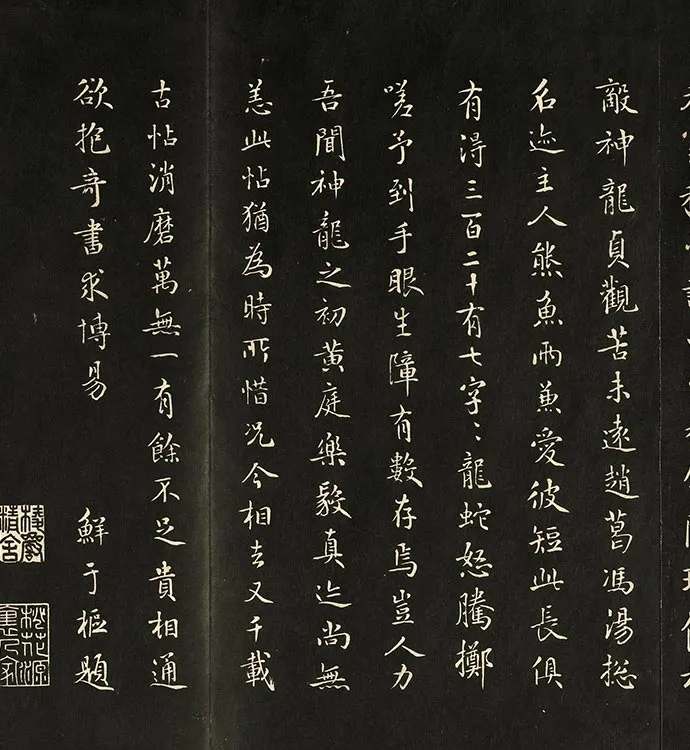 敵神龍貞觀苦未遠趙葛馮湯揔
名迹主人熊魚兩兼愛彼短此長俱
有得三百二十有七字〻龍蛇怒騰擲
嗟予到手眼生障有數存焉豈人力
吾聞神龍之初黃庭樂毅真迹尚無
恙此帖猶為時所惜況今相去又千載
古帖消磨萬無一有餘不足貴相通
欲抱奇書求博易
鮮于樞題